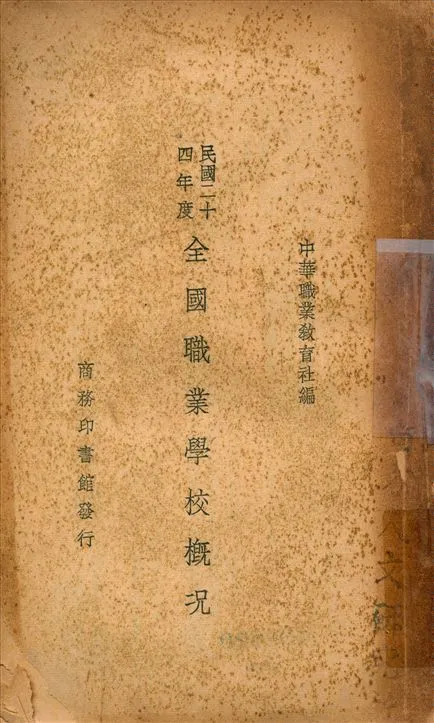 中華職業教育社編
民國二十
四年度
全國職業學校概況
商務印書館發行